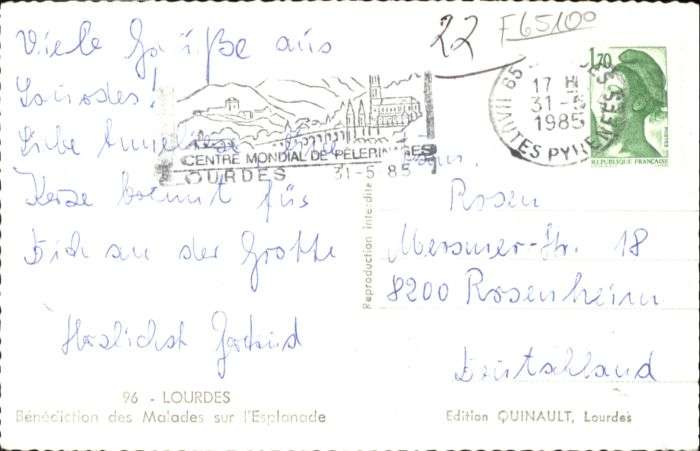 Viele Grüße aus
Lourdes!
Liebe
Kerze brennt für
Dich an der Grotte
Herzlichst Gertrud
22 F65100
CENTRE MONDIAL DE PÈLERINAGES
LOURDES 31-5 85
65
17 H
31-5
1985
HAUTES PYRENEES
1,70
REPUBLIQUE FRANÇAISE
Fam.
Rosen
Messmer-Str. 18
8200 Rosenheim
Deutschland
Reproduction interdite
96 - LOURDES
Bénédiction des Malades sur l'Esplanade
Edition QUINAULT, Lourdes